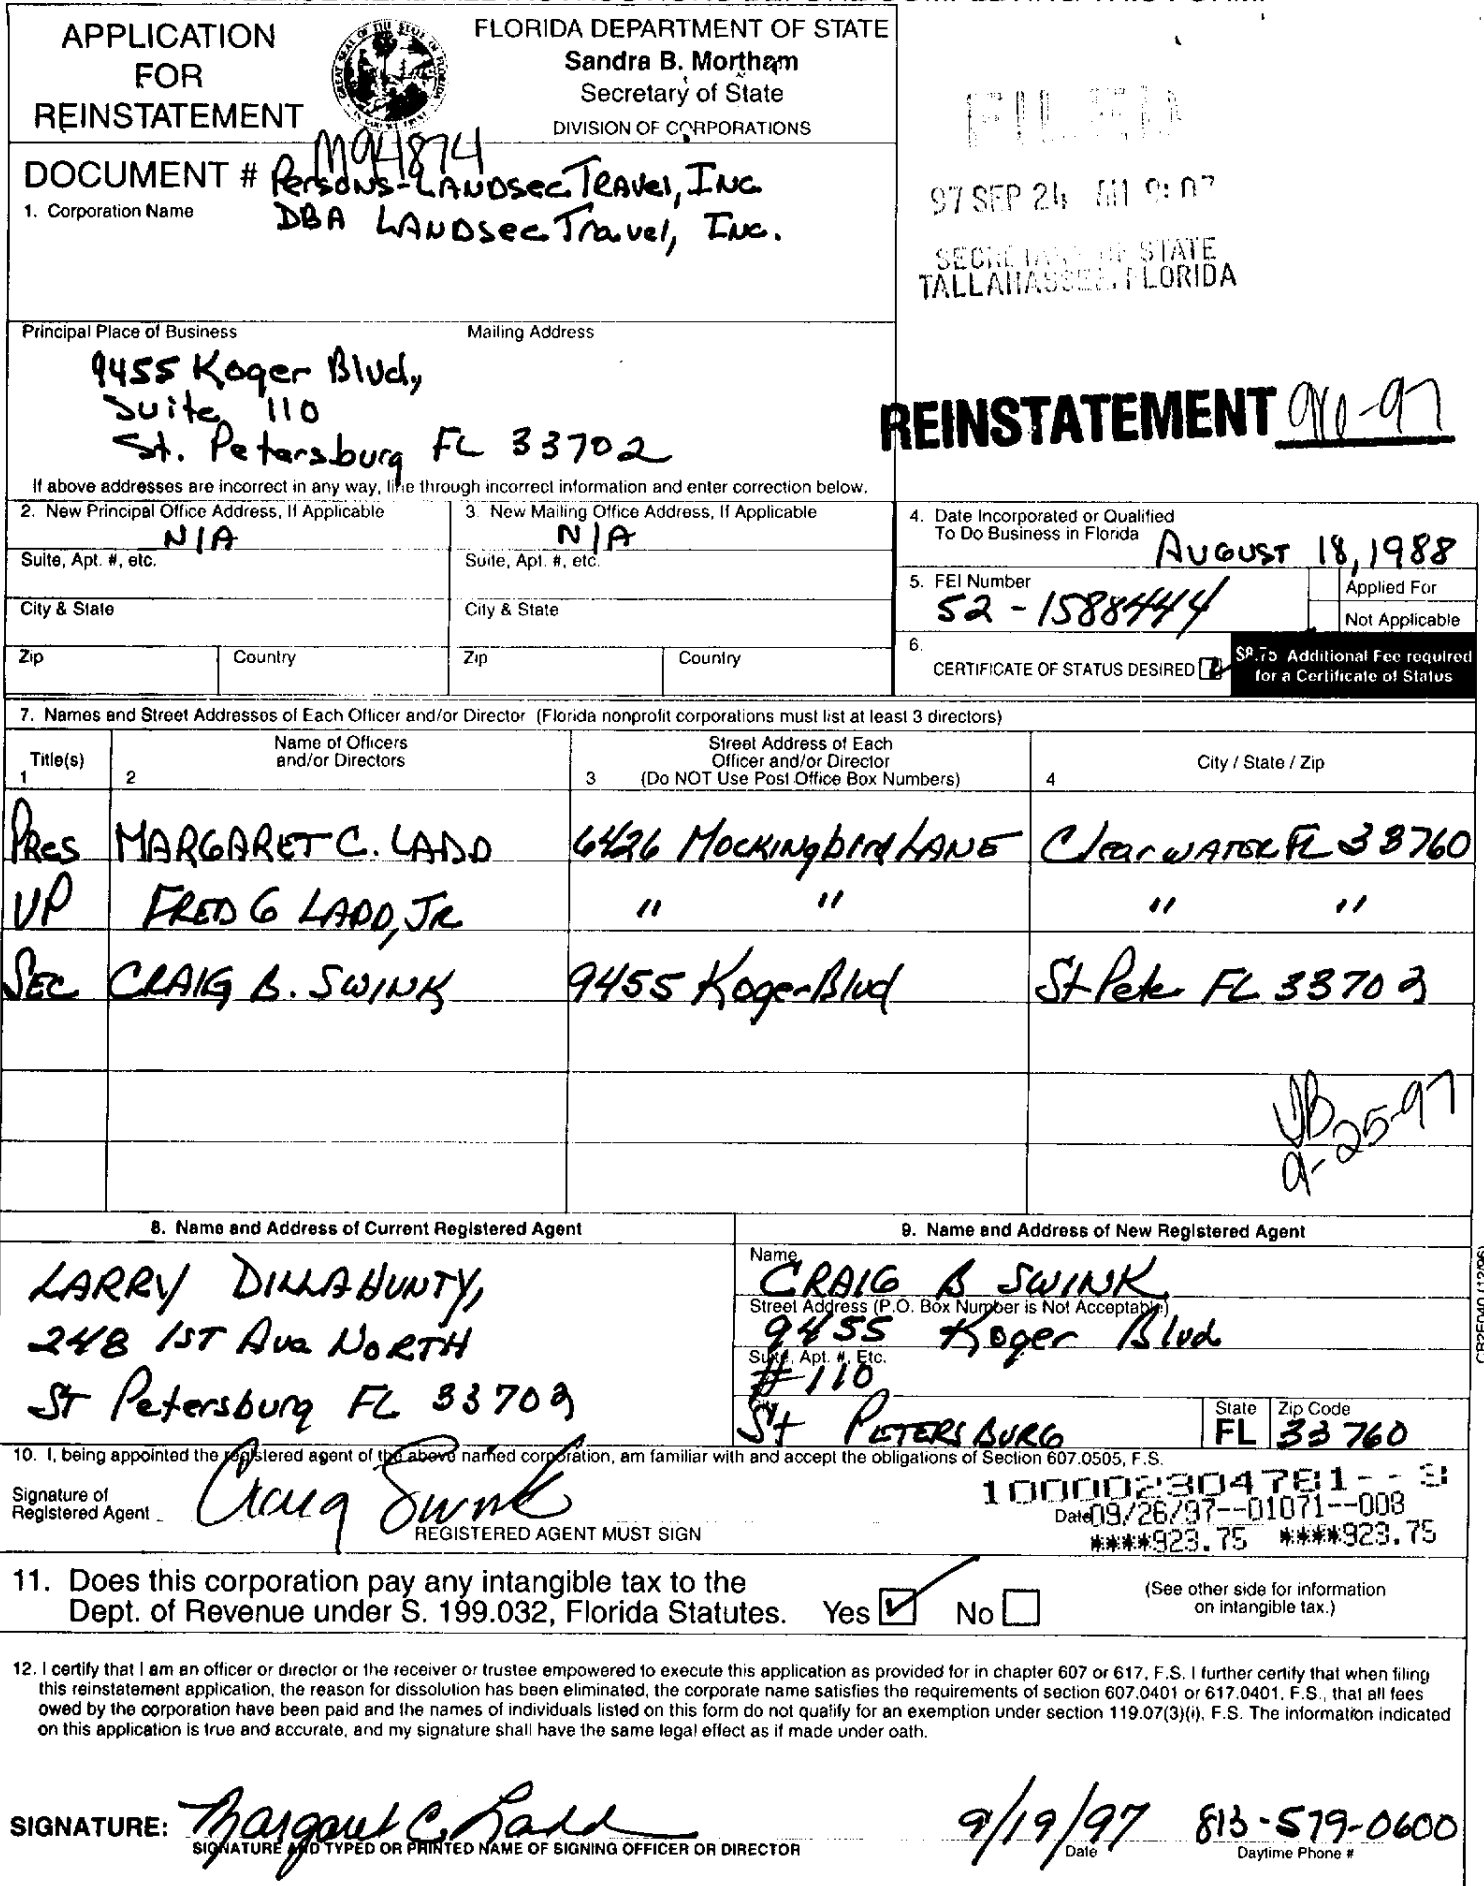 APPLICATION
FOR
REINSTATEMENT
FLORIDA DEPARTMENT OF STATE
Sandra B. Mortham
Secretary of State
DIVISION OF CORPORATIONS
FILED
97 SEP 24 AM 9:07
SECRETARY OF STATE
TALLAHASSEE, FLORIDA
M94874
DOCUMENT # Persons-LANDsec TRAvel, INC
1. Corporation Name
DBA LANDsec Travel, Inc.
Principal Place of Business Mailing Address
9455 Koger Blvd,
Suite 110
St. Petersburg FL 33702
REINSTATEMENT 96-97
If above addresses are incorrect in any way, line through incorrect information and enter correction below.
2. New Principal Office Address, If Applicable
N/A
Suite, Apt. #, etc.
City & State
Zip Country
3. New Mailing Office Address, If Applicable
N/A
Suite, Apt. #, etc.
City & State
Zip Country
4. Date Incorporated or Qualified
To Do Business in Florida AUGUST 18, 1988
5. FEI Number
52-1588444
Applied For
Not Applicable
6.
CERTIFICATE OF STATUS DESIRED
$8.75 Additional Fee required
for a Certificate of Status
7. Names and Street Addresses of Each Officer and/or Director (Florida nonprofit corporations must list at least 3 directors)
Title(s)
1
Name of Officers
and/or Directors
2
Street Address of Each
Officer and/or Director
3 (Do NOT Use Post Office Box Numbers)
City / State / Zip
4
PRes MARGARET C. LADD 6426 MOCKINGbird LANE ClearWATER FL 33760
VP FRED G LADD, JR " " " "
SEC CRAIG B. SWINK 9455 Koger Blvd St Pete FL 33702
9-25-97
8. Name and Address of Current Registered Agent
LARRY DILLAHUNTY,
248 1ST Ave NORTH
ST Petersburg FL 33702
9. Name and Address of New Registered Agent
Name
CRAIG B SWINK
Street Address (P.O. Box Number is Not Acceptable)
9455 Koger Blvd
Suite, Apt. #, Etc.
#110
City
St PETERSBURG
State
FL
Zip Code
33760
10. I, being appointed the registered agent of the above named corporation, am familiar with and accept the obligations of Section 607.0505, F.S.
Signature of
Registered Agent
Craig Swink
REGISTERED AGENT MUST SIGN
100002304781--3
Date 09/26/97--01071--003
****923.75 ****923.75
11. Does this corporation pay any intangible tax to the
Dept. of Revenue under S. 199.032, Florida Statutes. Yes No
(See other side for information
on intangible tax.)
12. I certify that I am an officer or director or the receiver or trustee empowered to execute this application as provided for in chapter 607 or 617, F.S. I further certify that when filing
this reinstatement application, the reason for dissolution has been eliminated, the corporate name satisfies the requirements of section 607.0401 or 617.0401, F.S., that all fees
owed by the corporation have been paid and the names of individuals listed on this form do not qualify for an exemption under section 119.07(3)(i), F.S. The information indicated
on this application is true and accurate, and my signature shall have the same legal effect as if made under oath.
SIGNATURE: Margaret C. Ladd 9/19/97 813-579-0600
SIGNATURE AND TYPED OR PRINTED NAME OF SIGNING OFFICER OR DIRECTOR
Date
Daytime Phone #
CR2E040 (12/96)